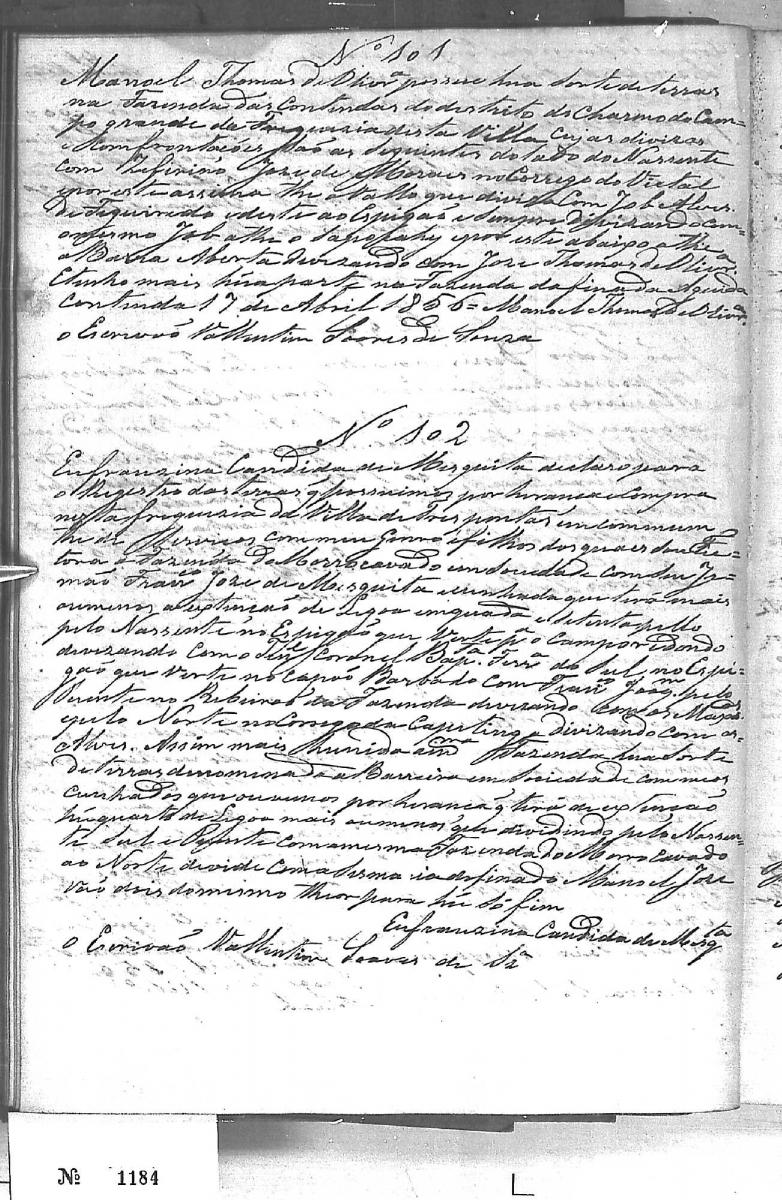 Nº 101
Manoel Thomas de Olivrª possue hua sorte de terras
na Fazenda das Contendas do destreto do Charmo do Cam-
po grande da Freguezia desta Villa, cujas divizas
e Comfrontações são as seguintes do lado do Nassente
com Zeferino José de Moraes no Corrego do Vietal
e por este assima the o Vallo que divide Com Job Alves
de Figueiredo e deste ao Espigão e sempre divizando com
o mesmo Job athe o e por este abaixo athe
a Barra Aberta divizando com Joze Thomas de Olivrª
E tenho mais hua parte na Fazenda da finada Agueda
Contenda 17 de Abril 1856 = Manoel Thomas de Olivrª
o Escrivaõ Vallentim Soares de Souza
Nº 102
Eufrauzina Candida de Mesquita declaro para
o Registro das terras q possuimos por herança e Compra
nesta freguezia da Villa de Tres pontas em commum
com meu Genro e filhos dos quaes sou Tu-
tora a Fazenda do Morro cavado em Sociedade com seu Ir-
maõ Francº Joze de Mesquita e cunhada que terá mais
ou menos a extençaõ de Legoa em quadra e
pelo Nassente no Espigaõ que Verte pª o Campo redondo
divizando com o Tenᵉ Coronel Bapᵗª Ferrª do Sul no Espi-
gaõ que Verte no Capaõ Barbado com Francº Joaqᵐ pelo
Puente no Ribeiraõ da Fazenda divizando Com os
e pelo Norte no Corrego da Capetinga divizando com os
Alves. Assim mais Reunida a mᵐª Fazenda hua Sorte
de terras denominada a Barreira em Sociedade com meos
cunhados que ouvemos por herança q terá de extençaõ
hú quarto de Legoa mais ou menos, que dividindo pelo Nassen-
te Sul e Puente com a mesma Fazenda do Morro cavado
ao Norte divide com a do finado Manoel Joze
vaõ dois do mesmo theor para hú só fim
Eufrauzina Candida de Mesqᵗª
o Escrivaõ Vallentim Soares de Sᶻª
Nº 1184